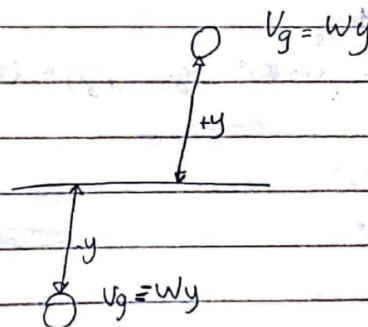 Vg = Wy
+y
-y
Vg = Wy